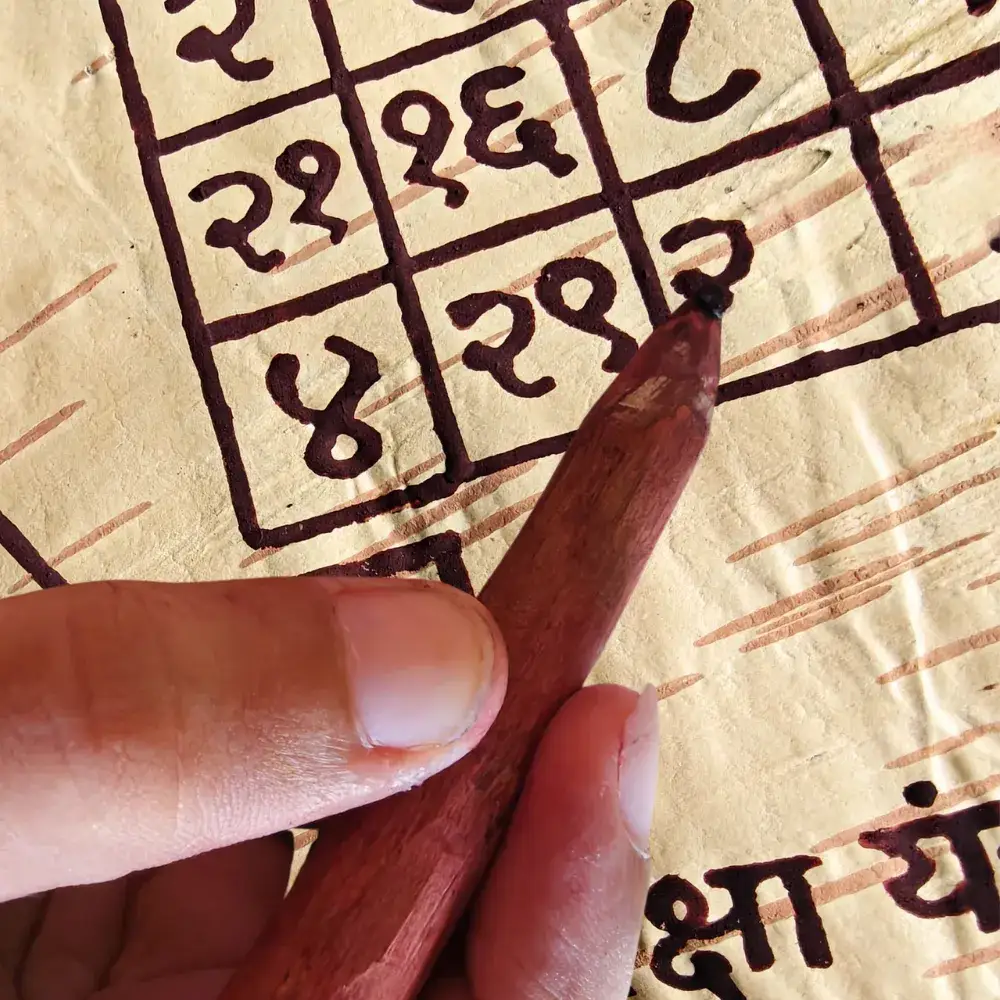 २
२१ १६ ८
४ २१ २
क्षा यं